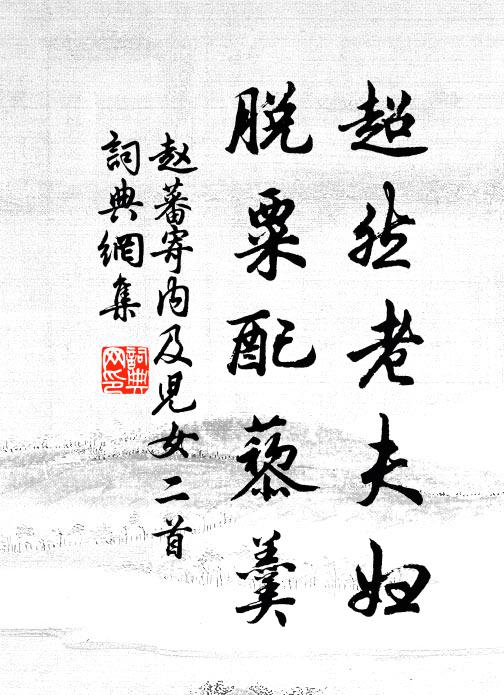 超然老夫妇
脱粟配藜羹
赵蕃寄内及児女二首
詞典網集
詞典网印